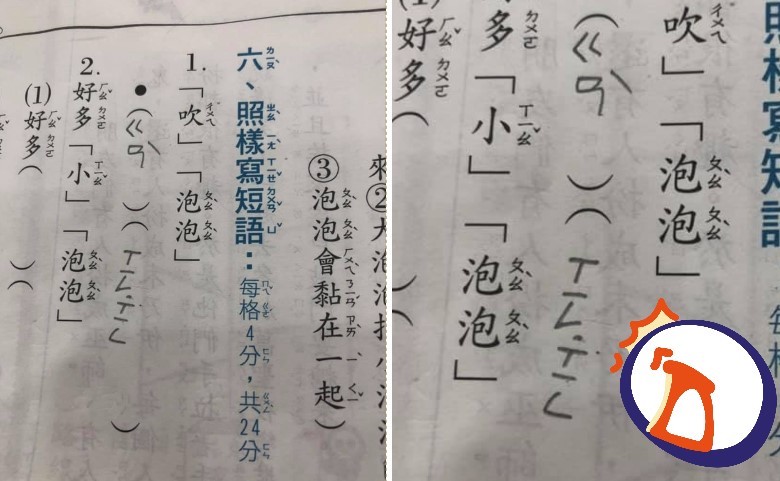 ③泡泡會黏在一起）
六、照樣寫短語：每格4分，共24分
1.「吹」「泡泡」
●（ㄍㄢˋ）（ㄒㄧㄥ˙ㄒㄧㄥ）
2.好多「小」「泡泡」
(1)好多（　）（
照樣寫短語
吹」「泡泡」
（ㄍㄢˋ）（ㄒㄧㄥ˙ㄒㄧㄥ
多「小」「泡泡」
(1)好多（　）（